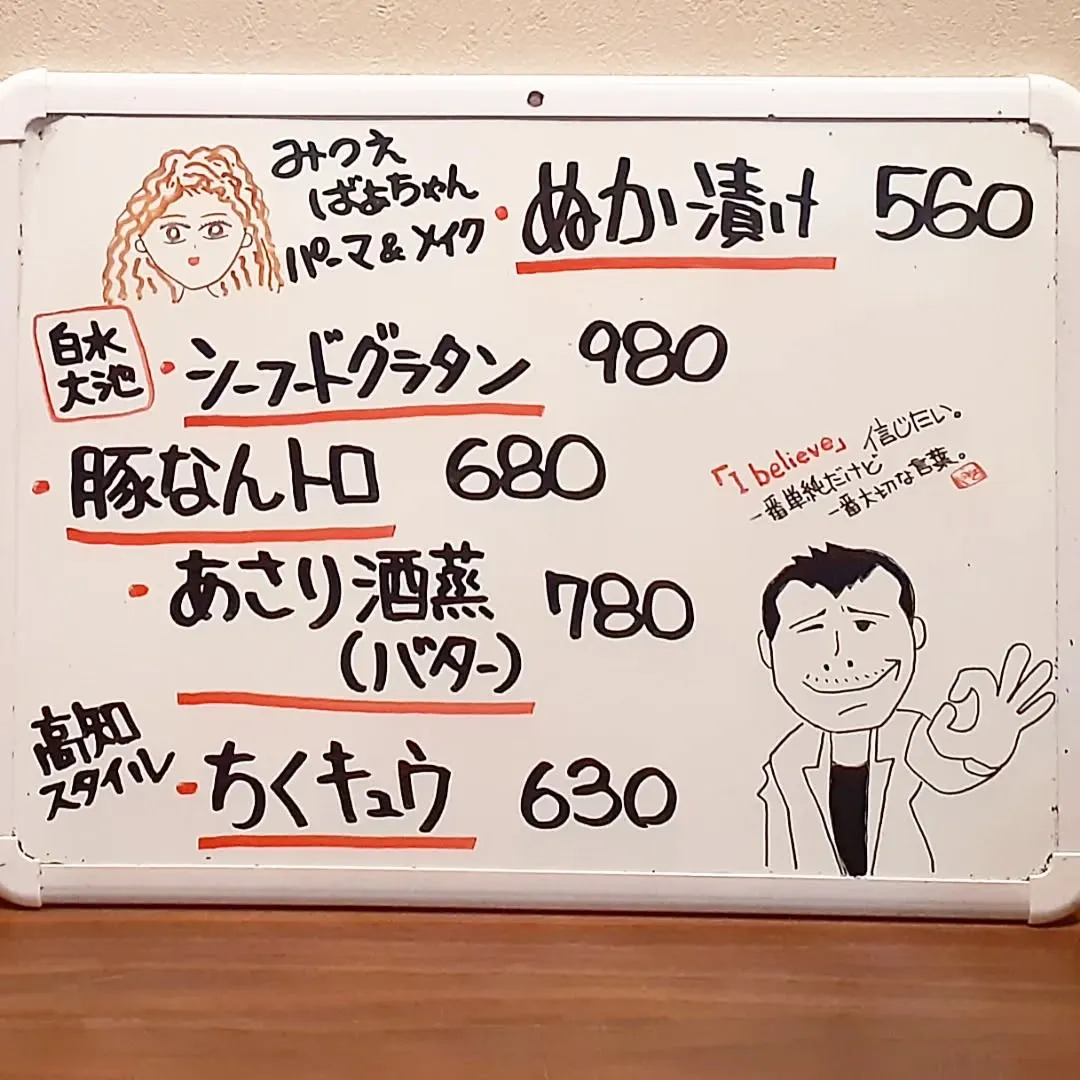 みつえ
ばぁちゃん
パーマ&メイク
・ぬか漬け 560
白水
大池
・シーフードグラタン 980
・豚なんトロ 680
「I believe」信じたい。
一番単純だけど
一番大切な言葉。
・あさり酒蒸 780
(バター)
高知
スタイル
・ちくキュウ 630